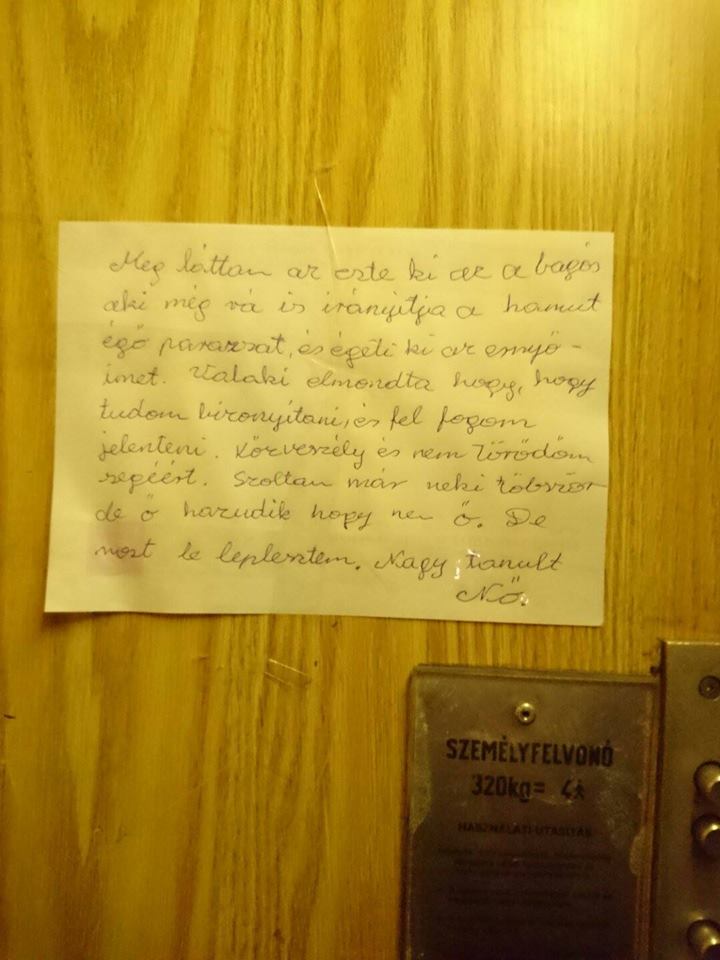 Meg láttam az este ki az a bagós
aki még rá is irányítja a hamut
égő parazsat, és égeti ki az ernyő-
imet. Valaki elmondta hogy, hogy
tudom bizonyítani, és fel fogom
jelenteni. Közveszély és nem törődöm
ségéért. Szoltam már neki többször
de ő hazudik hogy nem ő. De
most le lepleztem. Nagy tanult
Nő.
SZEMÉLYFELVONÓ
320kg= 4
HASZNÁLATI UTASÍTÁS